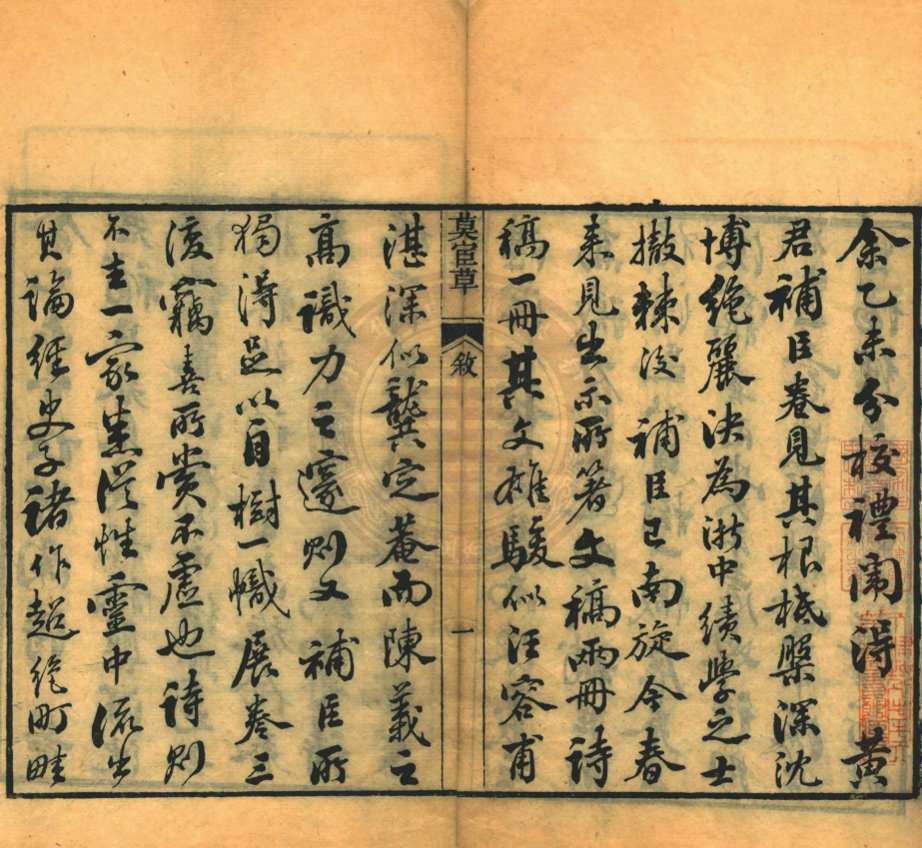 余乙未分校禮闈得 黃
君補臣卷見其根柢槃深沈
博絕麗決為浙中績學之士
撤棘後 補臣已南旋今春
來見出示所著文稿兩冊詩
稿一冊其文雄駿似汪容甫
莫宦草 敘 一
湛深似龔定菴而陳義之
高識力之邃則又 補臣所
獨得足以自樹一幟展卷三
復竊喜所賞不虛也詩則
不主一家悉從性靈中流出
其論經史子諸作超絕町畦